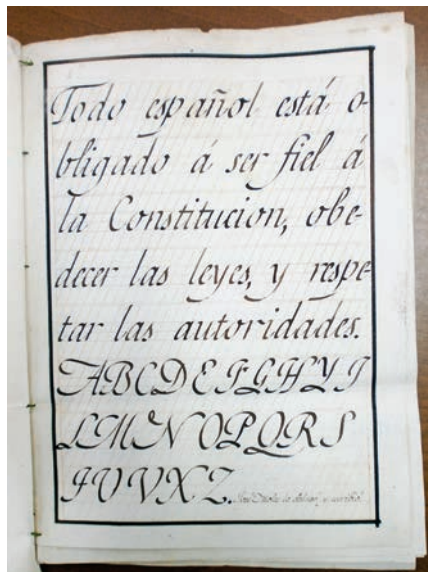 Todo español está o-
bligado á ser fiel á
la Constitucion, obe-
decer las leyes, y respe-
tar las autoridades.
ABCDEFGHYJ
LMNOPQRS
TUVXZ.
lo dibujó, y escribió.